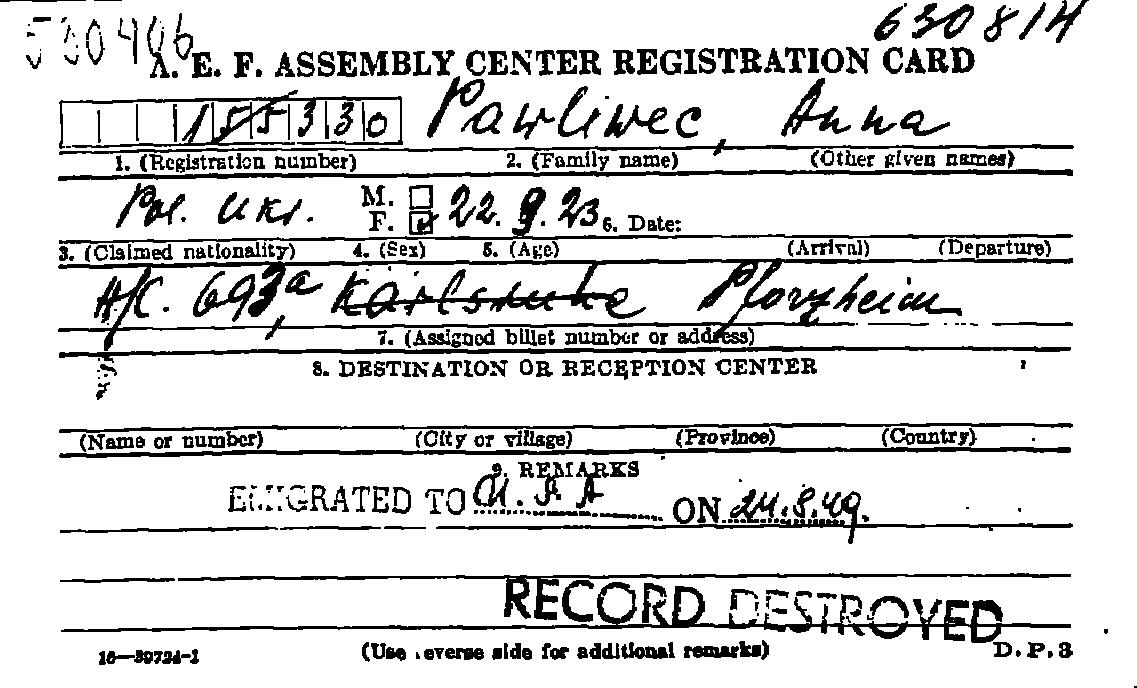 530406 630814
A. E. F. ASSEMBLY CENTER REGISTRATION CARD
155330 Pawliwec, Anna
1. (Registration number) 2. (Family name) (Other given names)
Pol. Ukr. M. F. 22. 9. 23 6. Date:
3. (Claimed nationality) 4. (Sex) 5. (Age) (Arrival) (Departure)
A/C. 693a, Karlsruhe Pforzheim
7. (Assigned billet number or address)
8. DESTINATION OR RECEPTION CENTER
(Name or number) (City or village) (Province) (Country)
9. REMARKS
EMIGRATED TO U. S. A ON 24.8.49.
RECORD DESTROYED
16—39724-1 (Use reverse side for additional remarks) D. P. 3